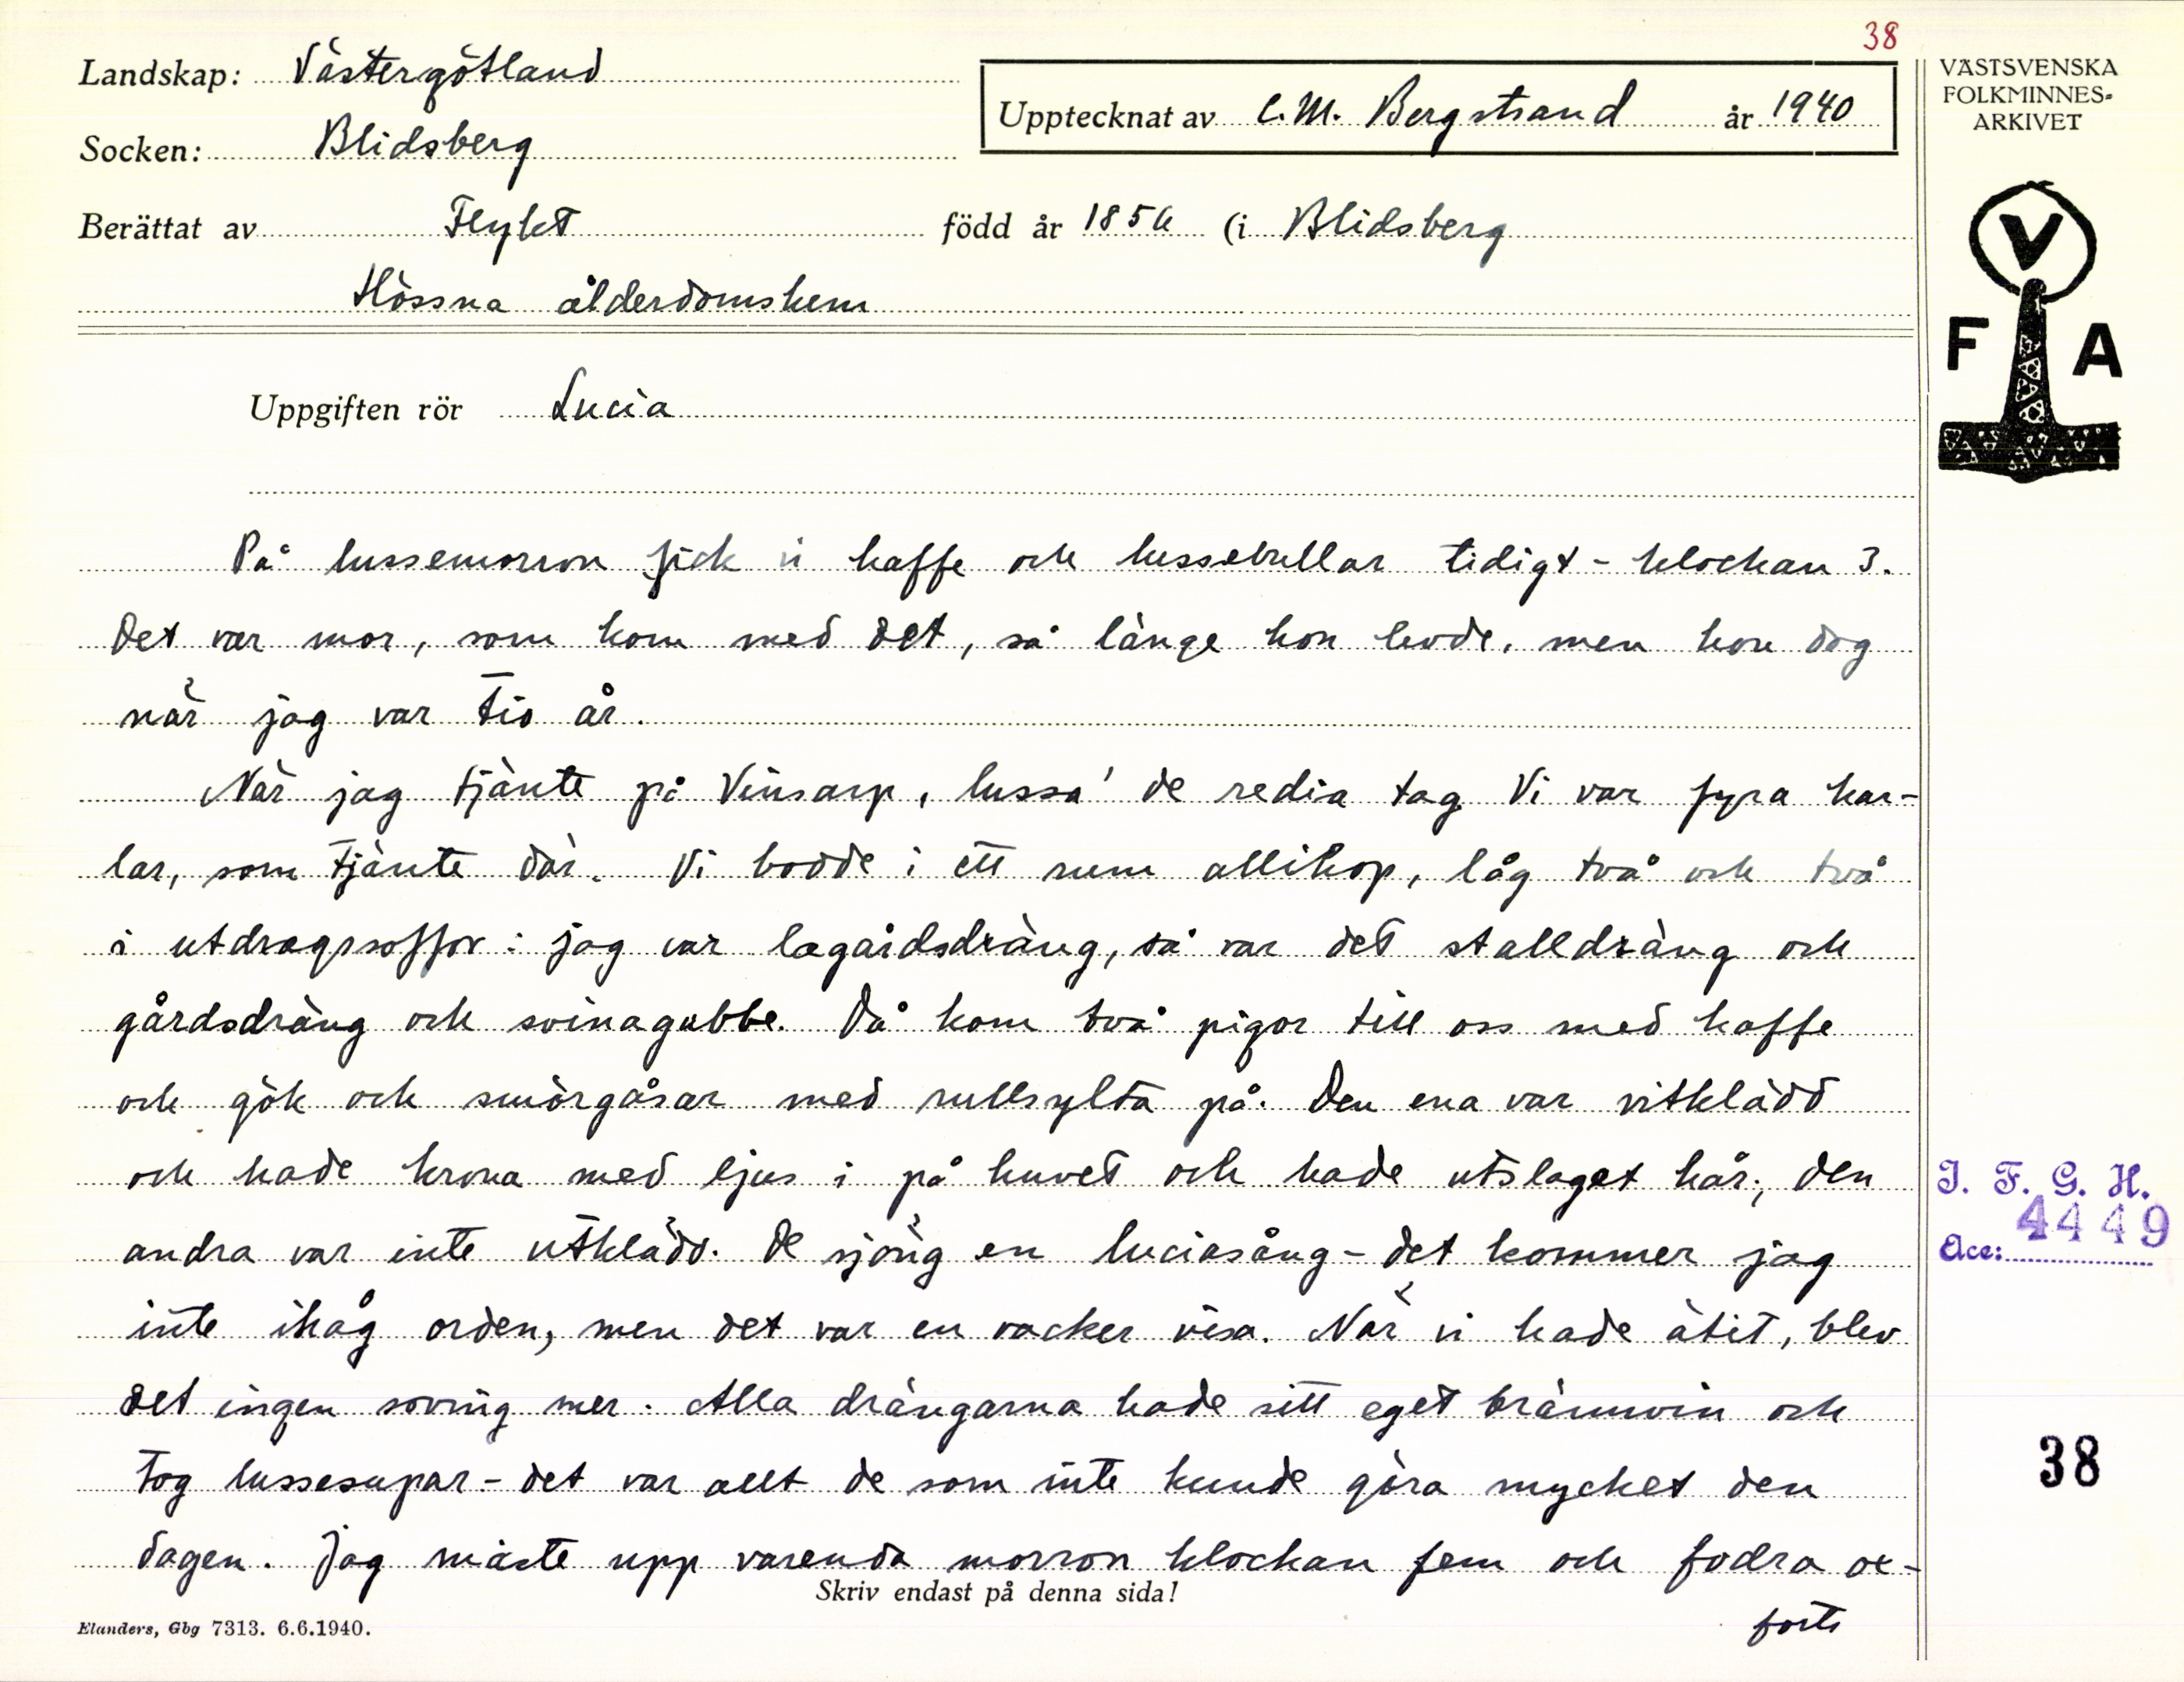 38
Landskap: Västergötland
Upptecknat av C.M. Bergstrand år 1940
VÄSTSVENSKA
FOLKMINNES-
ARKIVET
Socken: Blidsberg
Berättat av Flykt född år 1856 (i Blidsberg
Hössna ålderdomshem
V
F A
Uppgiften rör Lucia
På lussemorron fick vi kaffe och lussebullar tidigt - klockan 3.
Det var mor, som kom med det, så länge hon levde, men hon dog
när jag var tio år.
När jag tjänte på Vinsarp, lussa' de redia tag Vi var fyra kar-
lar, som tjänte där. Vi bodde i ett rum allihop, låg två och två
i utdragssoffor: jag var lagårdsdräng, så var det stalldräng och
gårdsdräng och svinagubbe. Då kom två pigor till oss med kaffe
och gök och smörgåsar med rullsylta på. Den ena var vitklädd
och hade krona med ljus i på huvet och hade utslaget hår; den
andra var inte utklädd. De sjöng en luciasång - det kommer jag
inte ihåg orden, men det var en vacker visa. När vi hade ätit, blev
det ingen sovning mer. Alla drängarna hade sitt eget brännvin och
tog lussesupar - det var allt de som inte kunde göra mycket den
dagen. Jag måste upp varenda morron klockan fem och fodra ox-
Skriv endast på denna sida!
forts
Elanders, Gbg 7313. 6.6.1940.
I. F. G. H.
Acc: 4449
38